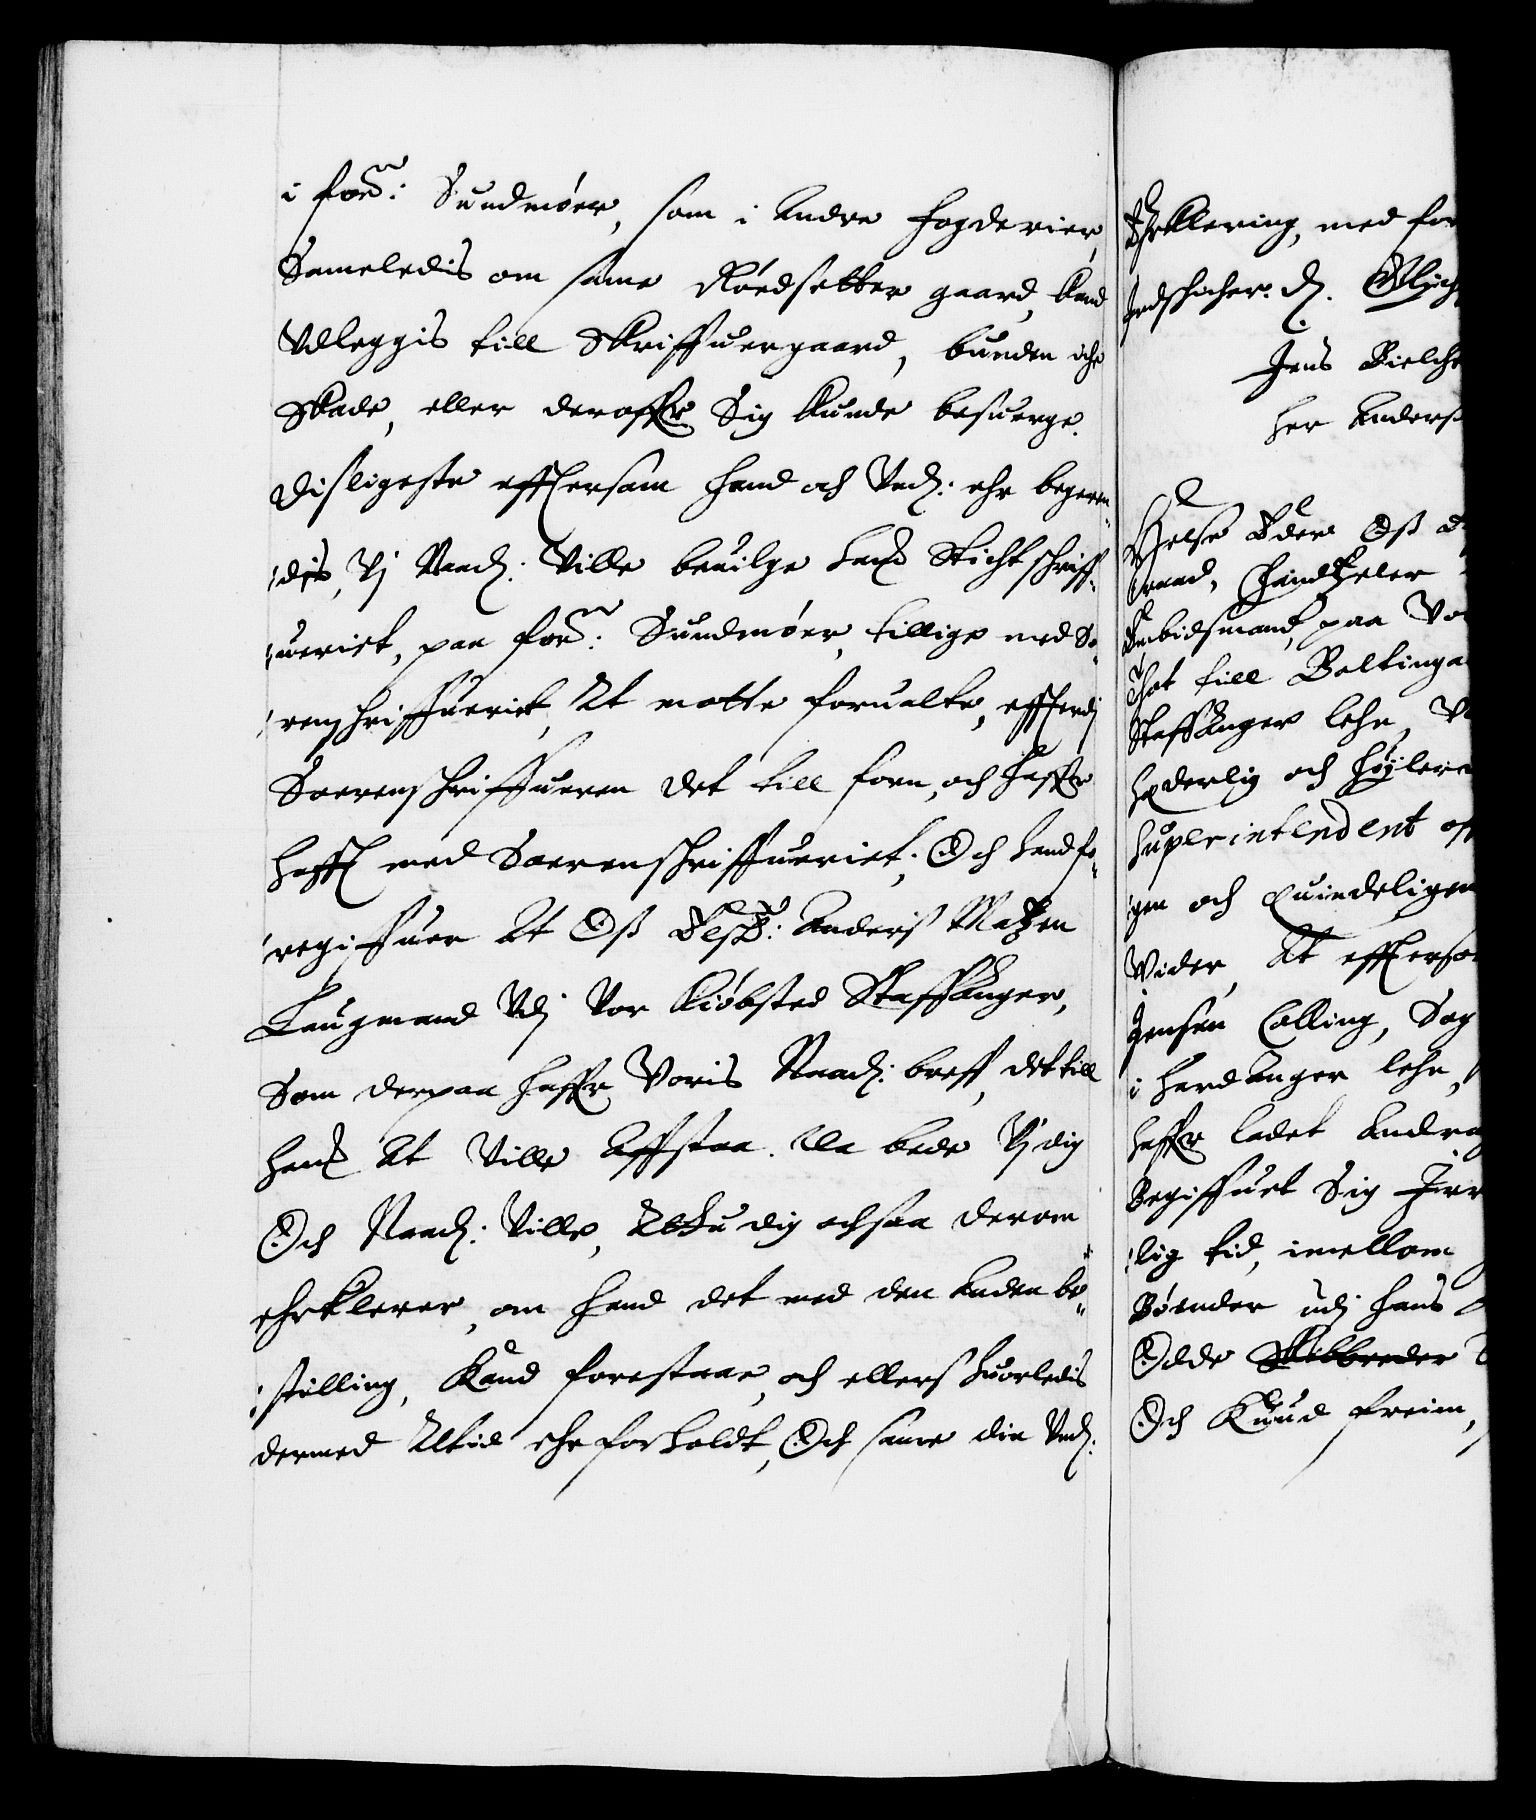 i forne: Sundmøer, som i Andre fogderier,
Sameledis om same Rørdsetter gaard, kand
Vdleggis till Skriffuergaard, bunden iche
skade, eller deroffuer Sig kunde besuerge.
Disligeste efftersom hand och Und: ehr begeren-
dis, Vj Naad: Ville beuilge hans Sticht schriff-
ueriet, paa forne: Sundmøer, tillige med So-
renschriffueriet, At motte forualte, efftersom
Soerenschriffueren det till forn, och haffuer
hafft med Soerenschriffueriet; Och hand fo-
regiffuer At Oß Elsk: Anders Matzen
Laugmand Vdj Vor Kiøbsted Staffanger,
Som derpaa haffuer Voris Naad: breff, det till
hans At Ville Affstaa. Da bede Vj dig
Och Naad: Ville, At du dig ochsaa derom
ehrklerer, om hand det med den Anden be-
stilling, Kand forestaae, och ellers huorledis
dermed Altid ehr forholdt, Och same din Und:
Ehrklering, med for
Indschicher. D. Glych
Jens Bielche
her Anders
Helse Eder Oß El
Raad, Candtzeler
Embidsmand paa Vor
Thot till Boltinga
Staffanger lehn, V
hederlig och Høylere
Superintendent of
gen och Quindeligen
Vider, At effterso
Jensen Colling, Sog
i Hardanger lehn,
haffuer ladet Andra
Begiffuet Sig Irr
lig tid, imellom
Bønder udj hans
Odde Skibbreder
Och Knud Freim,